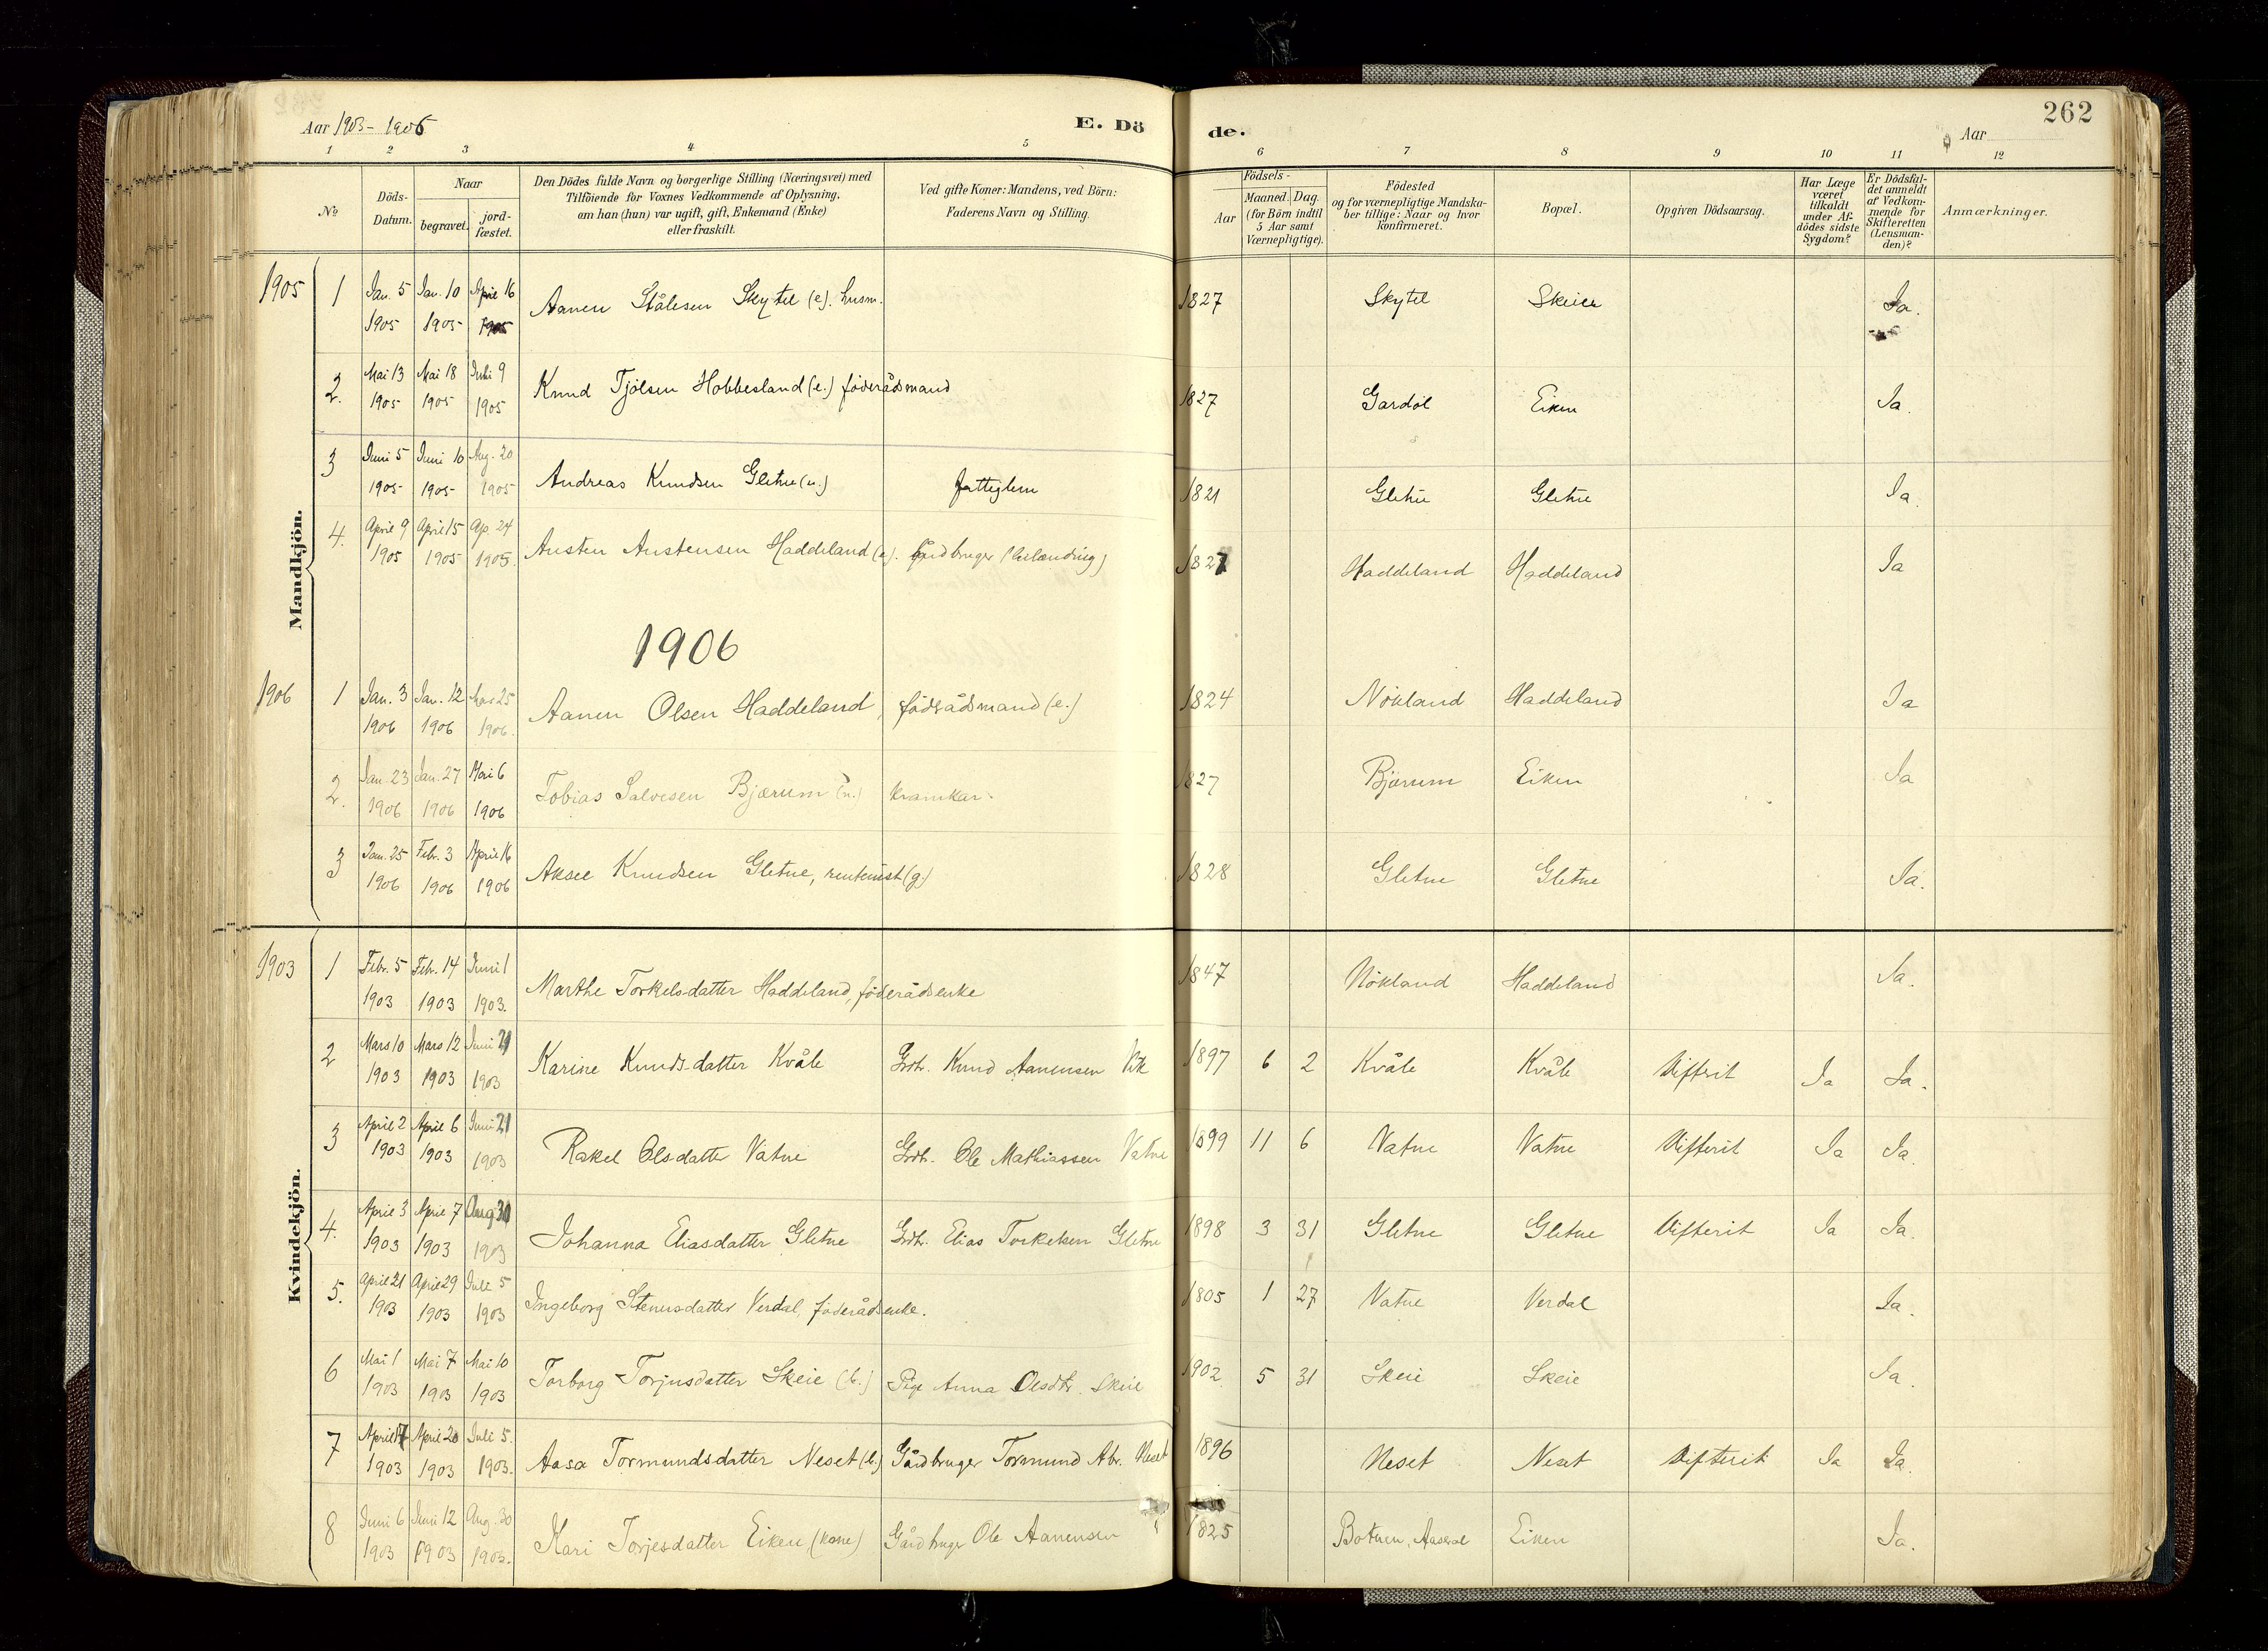 262
Aar 1903-1906
E. Dö de.
Aar
1 2 3 4 5 6 7 8 9 10 11 12
№
Döds-Datum.
Naar
begravet.
jord-fæstet.
Den Dödes fulde Navn og borgerlige Stilling (Næringsvei) med
Tilföiende for Voxnes Vedkommende af Oplysning,
om han (hun) var ugift, gift, Enkemand (Enke)
eller fraskilt.
Ved gifte Koner: Mandens, ved Börn:
Faderens Navn og Stilling.
Födsels-
Aar
Maaned. Dag.
(for Börn indtil
5 Aar samt
Værnepligtige).
Födested
og for værnepligtige Mandska-
ber tillige: Naar og hvor
konfirmeret.
Bopæl.
Opgiven Dödsaarsag.
Har Læge
været
tilkaldt
under Af-
dödes sidste
Sygdom?
Er Dödsfal-
det anmeldt
af Vedkom-
mende for
Skifteretten
(Lensman-
den)?
Anmærkninger.
Mandkjön.
1905 1 Jan. 5 1905 Jan. 10 1905 April 16 1905 Aanen Stålesen Skytel (e). husm. 1827 Skytel Skeie Ja.
2. Mai 13 1905 Mai 18 1905 Juli 9 1905 Knud Tjölsen Hobbesland (e.) föderådsmand 1827 Gardöl Eiken Ja.
3 Juni 5 1905 Juni 10 1905 Aug. 20 1905 Andreas Knudsen Gletne (u.) fattiglem 1821 Gletne Gletne Ja.
4. April 9 1905 April 15 1905 Ap. 24 1905. Austen Austensen Haddeland (e). Gårdbruger 1827 Haddeland Haddeland Ja
1906
1906 1 Jan. 3 1906 Jan. 12 1906 Mars 25 1906. Aanen Olsen Haddeland, föderådsmand (e.) 1824 Nökland Haddeland Ja
2. Jan. 23 1906 Jan. 27 1906 Mai 6 1906 Tobias Salvesen Bjærum (u.) kramkar. 1827 Bjærum Eiken Ja
3 Jan. 25 1906 Febr. 3 1906 April 16 1906 Aksel Knudsen Gletne, rentenist (g.) 1828 Gletne Gletne Ja.
Kvindekjön.
1903 1 Febr. 5 1903 Febr. 14 1903 Juni 1 1903. Marthe Torkelsdatter Haddeland, föderådsenke 1847 Nökland Haddeland Ja.
2 Mars 10 1903 Mars 12 1903 Juni 21 1903 Karine Knudsdatter Kvåle Grdb. Knud Aanensen 1897 6 2 Kvåle Kvåle Difterit Ja Ja.
3 April 2 1903 April 6 1903 Juni 21 1903 Rakel Olsdatter Vatne Grdb. Ole Mathiassen Vatne 1899 11 6 Vatne Vatne Difterit Ja Ja.
4. April 3 1903 April 7 1903 Aug 30 1903 Johanna Eliasdatter Gletne Grdb. Elias Torkelsen Gletne 1898 3 31 Gletne Gletne Difterit Ja Ja.
5. April 21 1903 April 29 1903 Juli 5 1903 Ingeborg Stenersdatter Verdal, föderådsenke. 1805 1 27 Vatne Verdal Ja.
6 Mai 1 1903 Mai 7 1903 Mai 10 1903 Torborg Torjusdatter Skeie (b.) Pige Anna Olsdtr. Skeie 1902 5 31 Skeie Skeie Ja.
7 April 17 1903 April 20 1903 Juli 5. 1903. Aasa Tormundsdatter Neset (b.) Gårdbruger Tormund Abr. Neset 1896 Neset Neset Difterit Ja Ja.
8 Juni 6 1903 Juni 12 1903 Aug. 30 1903. Kari Torjesdatter Eiken (kone) Gårdbruger Ole Aanensen " 1825 Botnen, Aaseral Eiken Ja.